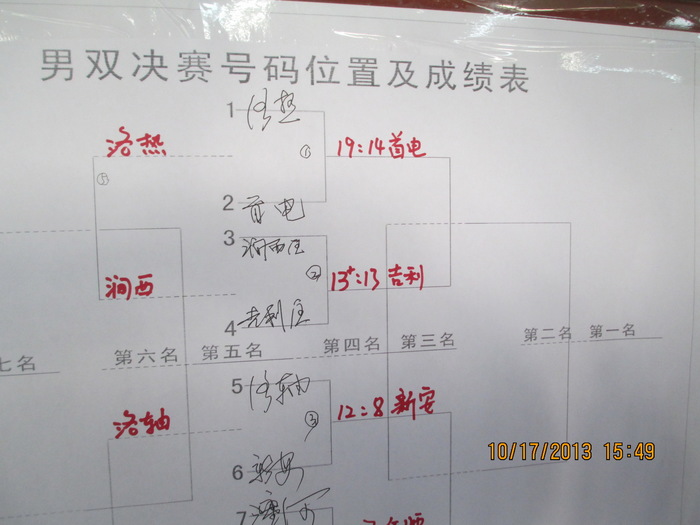 男双决赛号码位置及成绩表
1 洛热
洛热 ① 19:14 首电
①
2 首电
3 涧西区
涧西 ② 13+:13 吉利
4 吉利区
七名 第六名 第五名 第四名 第三名 第二名 第一名
5 洛轴
洛轴 ③ 12:8 新安
6 新安
10/17/2013 15:49
7